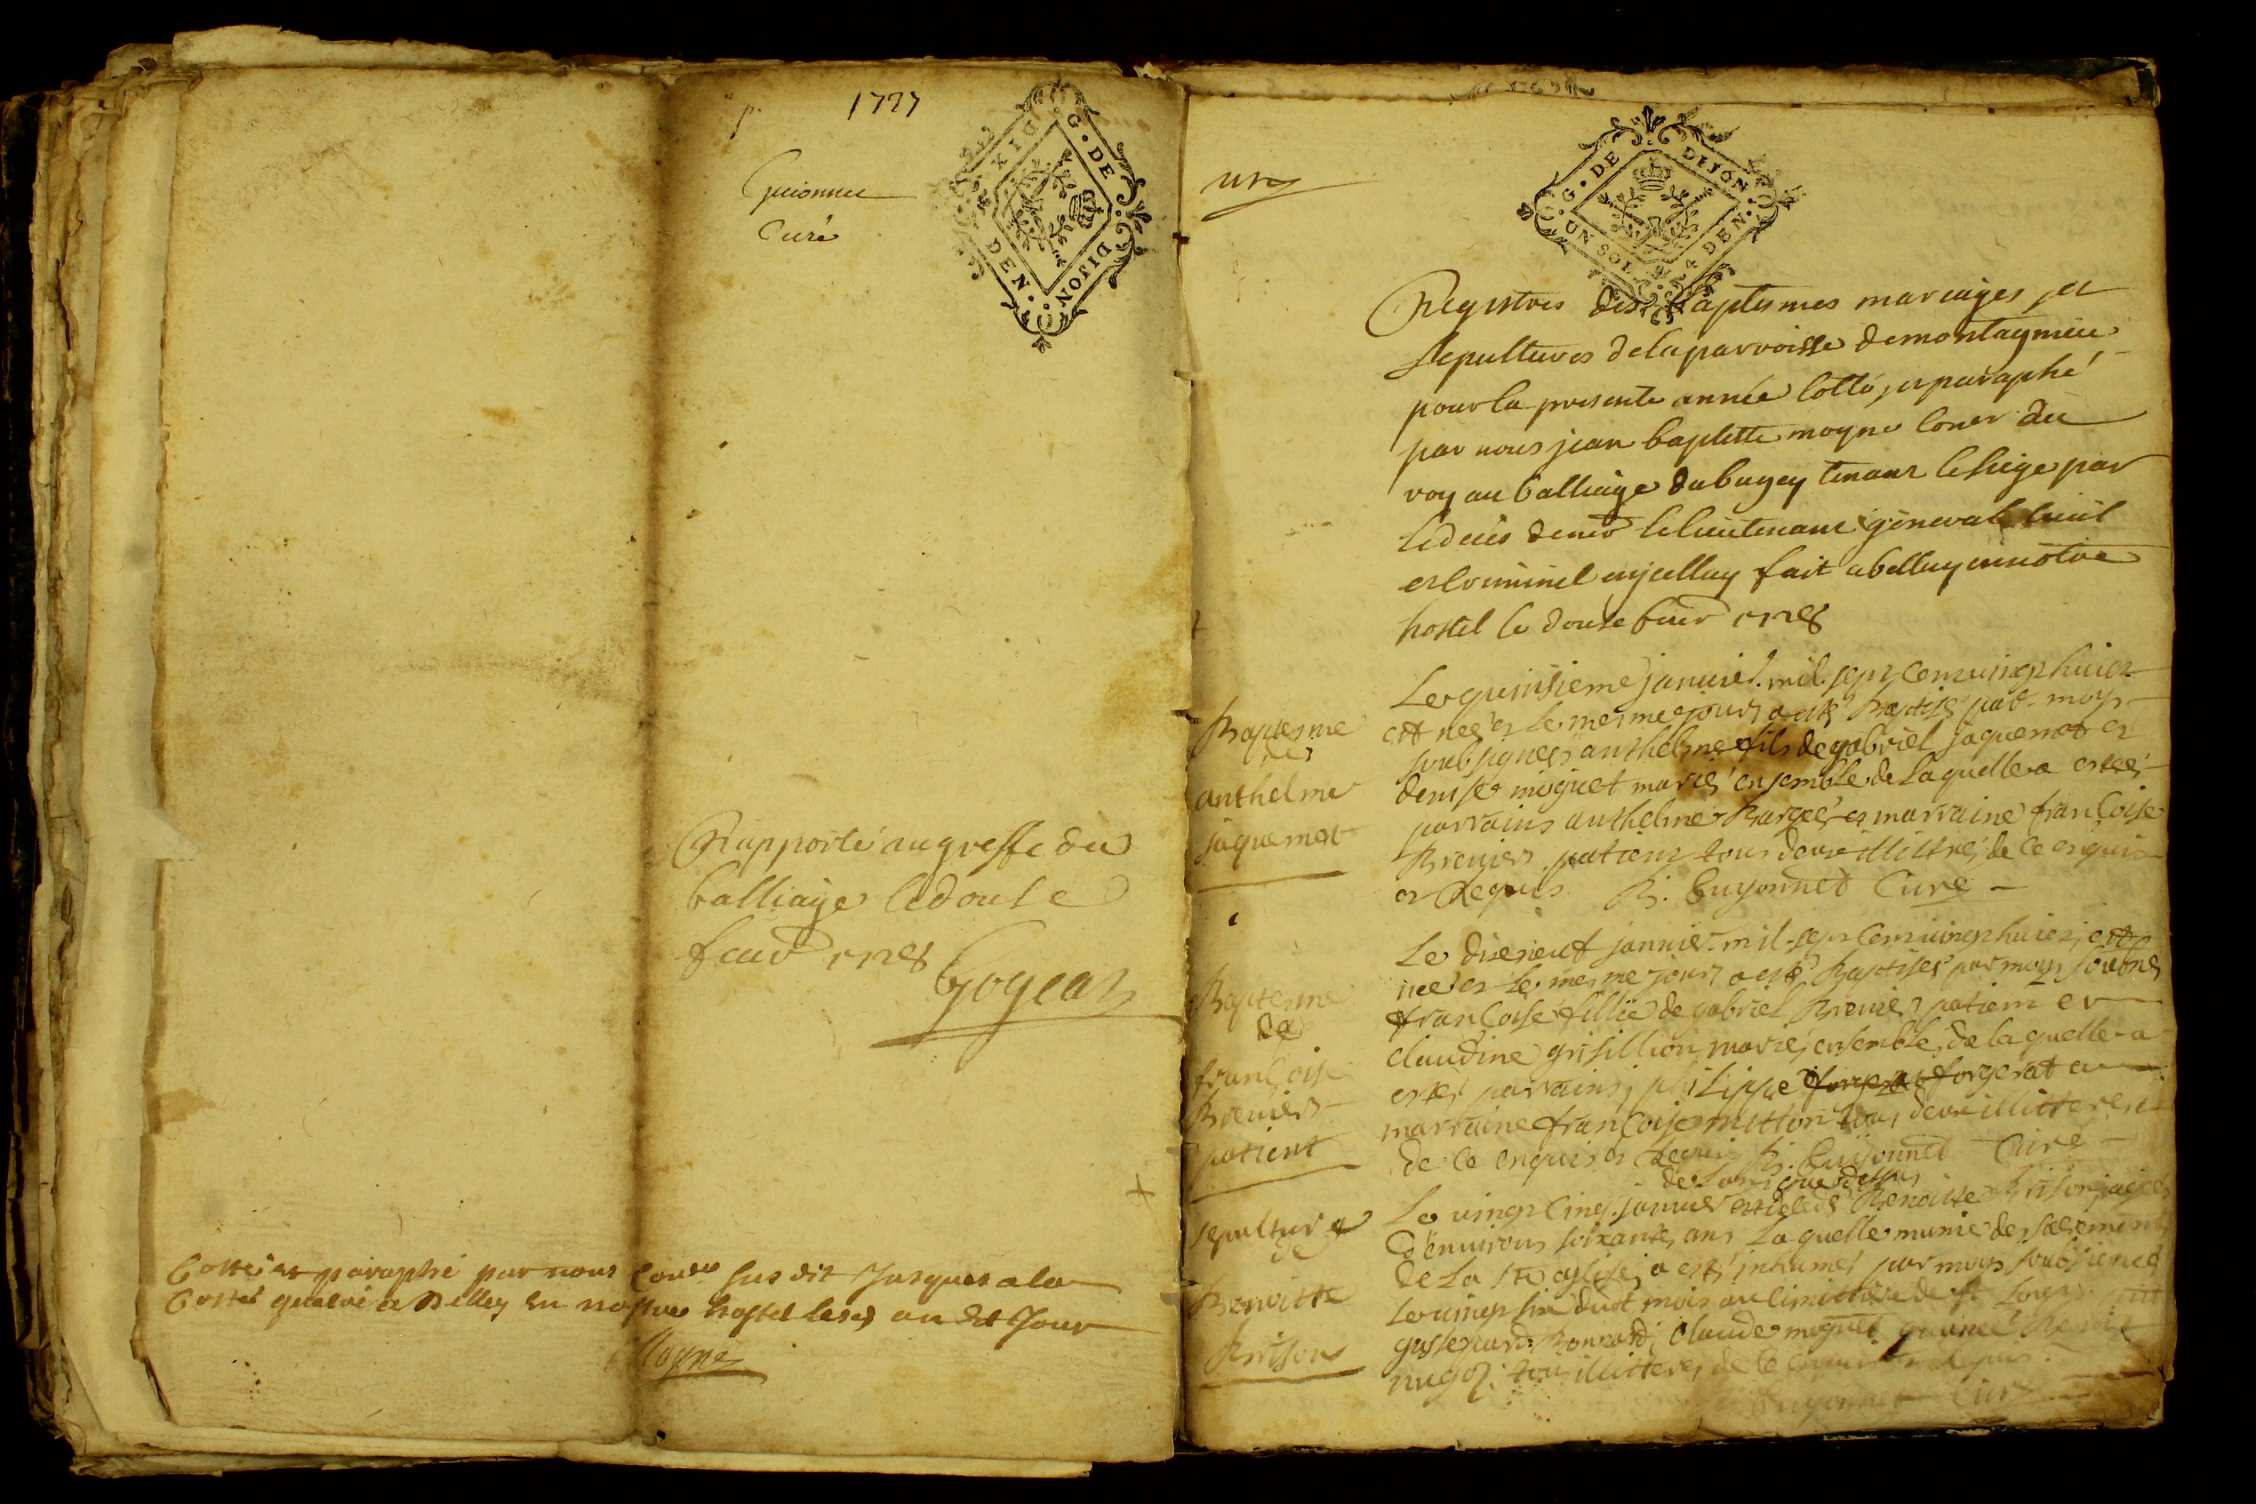 1727
Guionnet
Curé
G. DE DIJON
DIX DEN.
Rapporté au greffe du
balliage le douse
fevr 1728
Gogeat
Cotté et paraphé par nous Coner susdit Jusques a la
Cotte quatre a Belley en nostre hostel lesd an et Jour
Moyne
un
G. DE DIJON
UN SOL 4 DEN.
Registres des baptismes mariages, et
sepultures de la parroisse de montagnieu
pour la presente année cotté, et paraphé
par nous jean baptiste moyne coner du
roy au balliage du bugey tenant le siege par
le deces de mr le lieutenant general civil
et criminel en jcelluy fait a belley en notre
hostel le douse fevr 1728
Baptesme
de
anthelme
jaquemet
Le quinsieme janvier mil sept cent vingt huict
est nee et le mesme jour a esté Baptise par moy
soubsignes anthelme fils de gabriel jaquemet et
denise miguet mariés ensemble de Laquelle a estee
parrains anthelme et marraine francoise
Brenier patient tous deux illittré de ce enquis
et Requis B. Guyonnet Curé
Baptesme
de
francoise
Brenier
patient
Le diseneuf janvier mil sept cent vingt huict est
nee et le mesme jour a esté Baptiser par moy soubsignes
francoise fillie de gabriel Brenier patient et
claudine grisillion mariés ensemble de laquelle a
estes parrains philippe forgerat et
marraine francoise mitton tous deux illitteres
de ce enquis et Requis B. Guyonnet Curé
sepulture
de
Benoitte
Brison
Le vingt cinq janvier est decede Benoitte Brison agée
d'environs soixante ans Laquelle munie des sacrements
de La ste eglise a esté inhumés par moy soubsigné
Le vingt six dudt mois au cimittiere de
Bonnard, Claude miguet
tous illitteres de ce enquis et requis
Guyonnet Curé